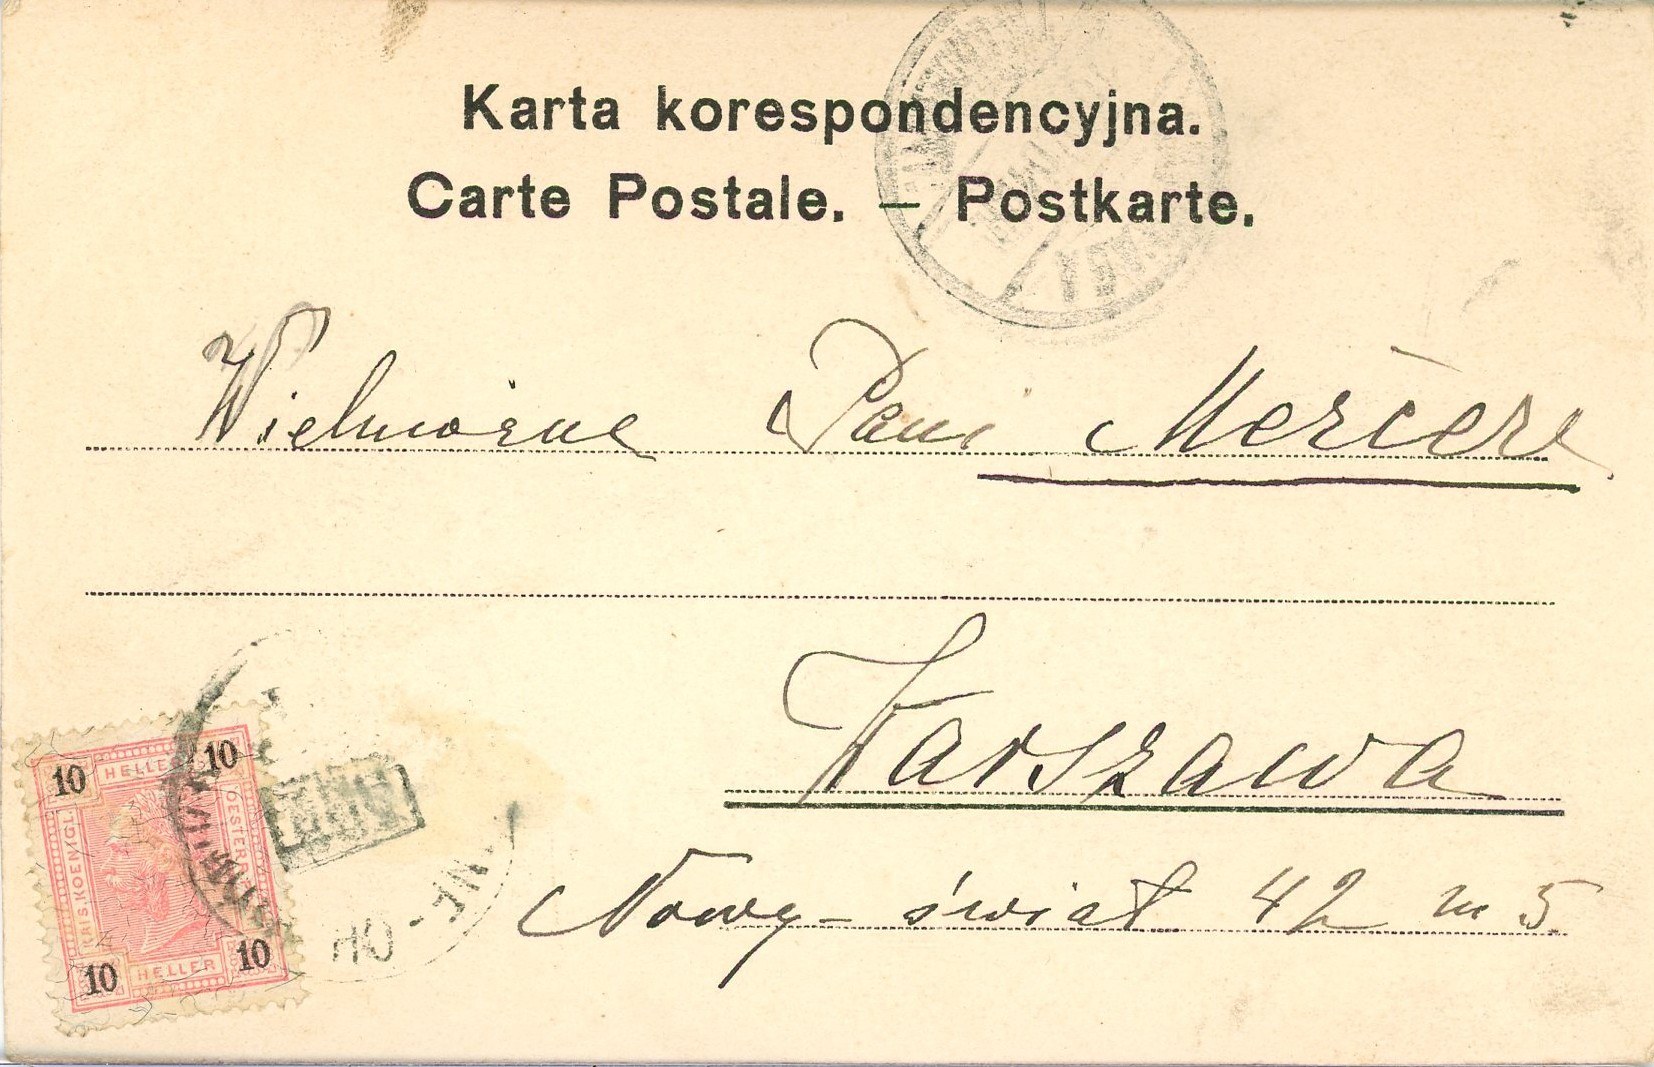 Karta korespondencyjna.
Carte Postale. — Postkarte.
Wielmożne Pani Merčere
Warszawa
Nowy-świat 42 m 5.
10 HELLER 10
KAIS. KOENIGL.
OESTERR.
10 HELLER 10